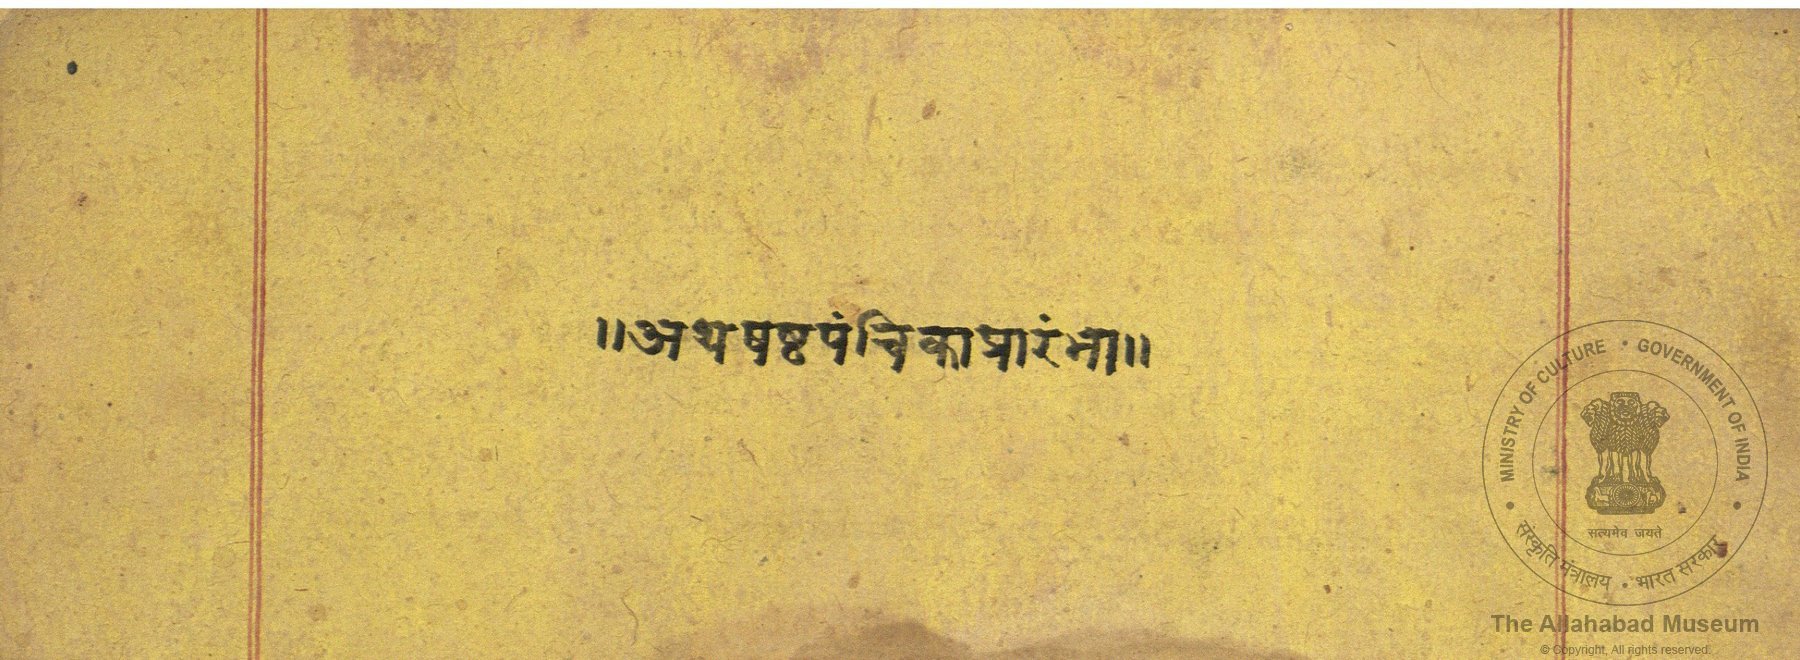 ॥अथषष्टपंचिकाप्रारंभा॥
MINISTRY OF CULTURE • GOVERNMENT OF INDIA
सत्यमेव जयते
संस्कृति मंत्रालय • भारत सरकार
The Allahabad Museum
© Copyright, All rights reserved.